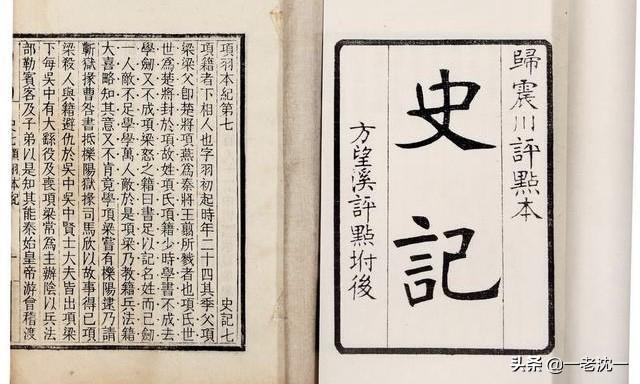 歸震川評點本
史記
方望溪評點坿後
項羽本紀第七 史記七
項籍者下相人也字羽初起時年二十四其季父項
梁梁父即楚將項燕爲秦將王翦所戮者也項氏世
世爲楚將封於項故姓項氏項籍少時學書不成去
學劒又不成項梁怒之籍曰書足以記名姓而已劒
一人敵不足學學萬人敵於是項梁乃教籍兵法籍
大喜略知其意又不肯竟學項梁嘗有櫟陽逮乃請
蘄獄掾曹咎書抵櫟陽獄掾司馬欣以故事得已項
梁殺人與籍避仇於吳中吳中賢士大夫皆出項梁
下每吳中有大繇役及喪項梁常爲主辦陰以兵法
部勒賓客及子弟以是知其能秦始皇帝游會稽渡
頭条 @一老沈一